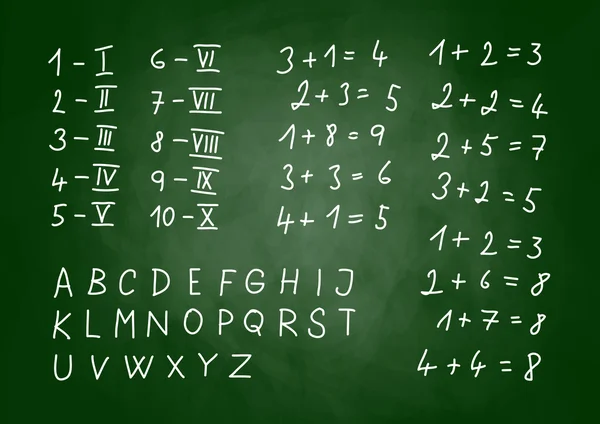 1 - I
2 - II
3 - III
4 - IV
5 - V
6 - VI
7 - VII
8 - VIII
9 - IX
10 - X
3 + 1 = 4
2 + 3 = 5
1 + 8 = 9
3 + 3 = 6
4 + 1 = 5
1 + 2 = 3
2 + 2 = 4
2 + 5 = 7
3 + 2 = 5
1 + 2 = 3
2 + 6 = 8
1 + 7 = 8
4 + 4 = 8
A B C D E F G H I J
K L M N O P Q R S T
U V W X Y Z